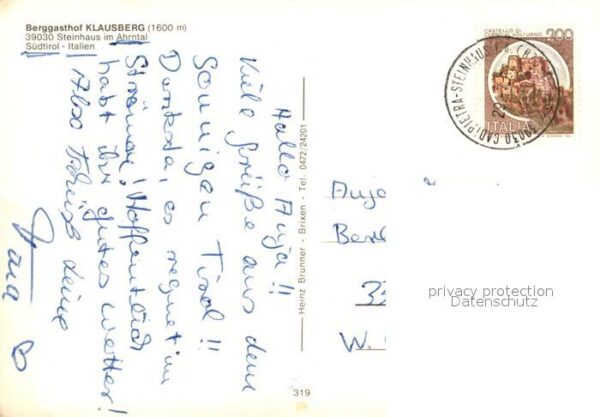 Berggasthof KLAUSBERG (1600 m)
39030 Steinhaus im Ahrntal
Südtirol - Italien
Hallo Anja!!
Viele Grüße aus dem
sonnigen Tirol!!
es regnet im
Strömen! Hoffentlich
habt ihr gutes Wetter!
Also Tschüss deine
Heinz Brunner - Brixen - Tel. 0472/24201
319
CASTELLO DI
200
ITALIA
39030 CADIPIETRA-STEINHAUS
Anja
privacy protection
Datenschutz
W.